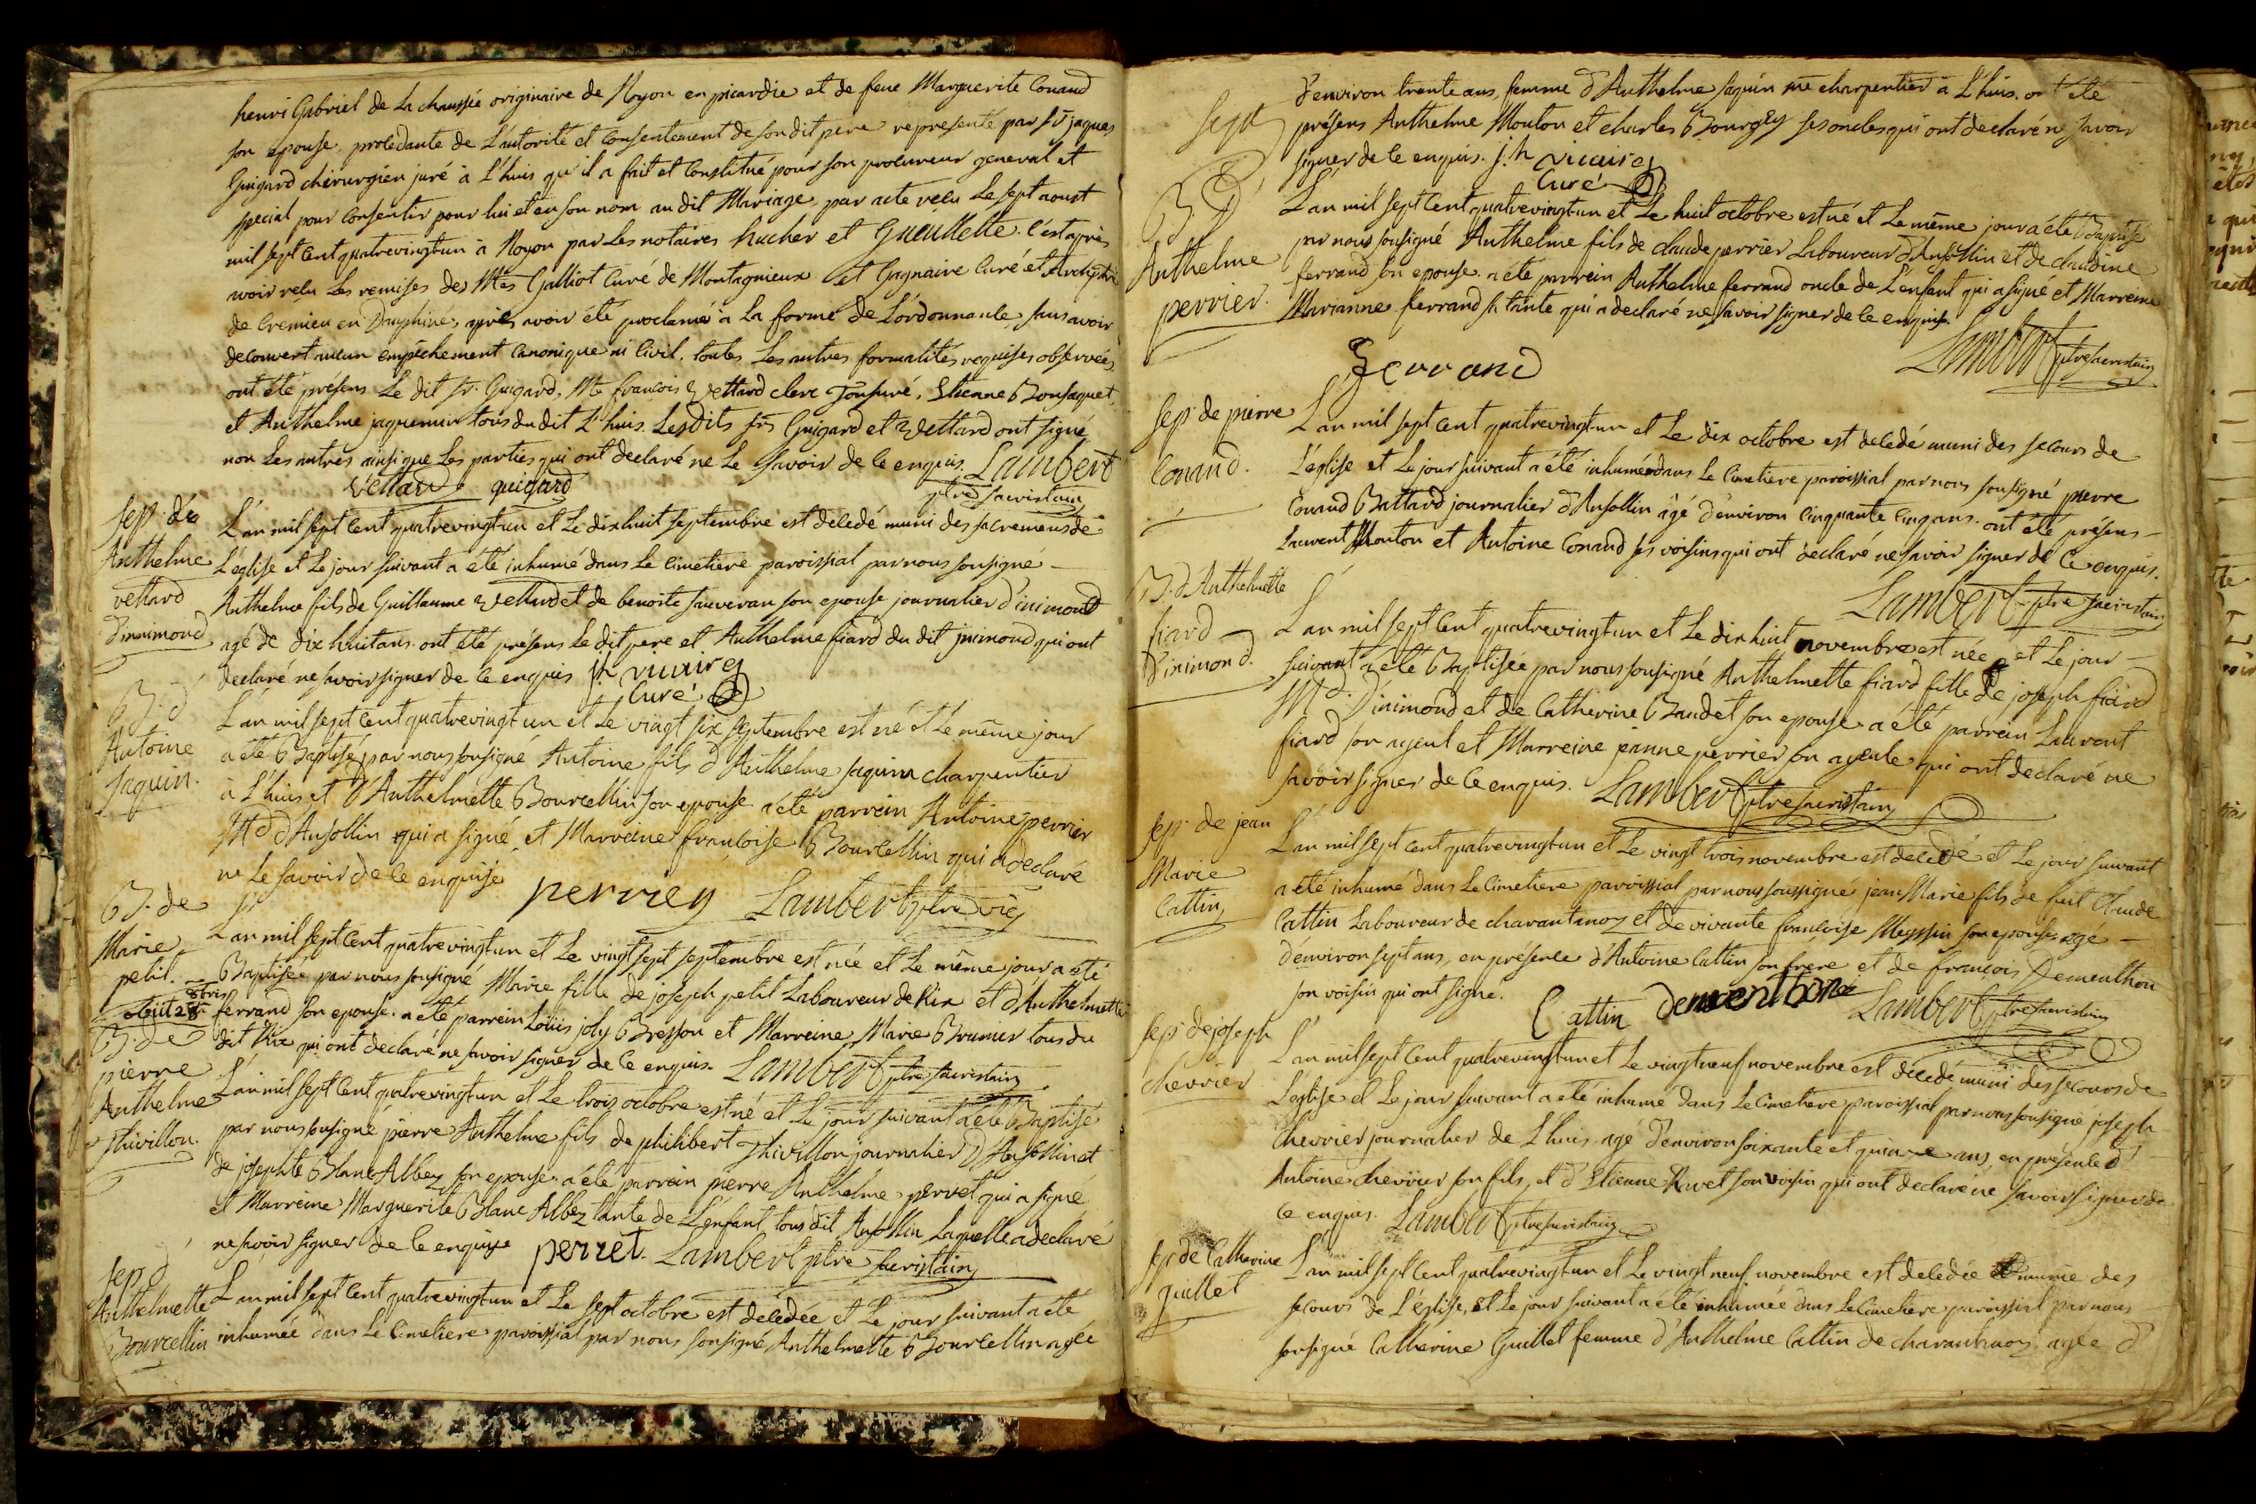 henri Gabriel de La chaussée originaire de Noyon en picardie et de feue Marguerite Conand
son epouse. procedante de L'autorité et consentement de son dit pere representé par Sr jaques
Guigard chirurgien juré à L'huis qu'il a fait et constitué pour son procureur general et
special pour consentir pour lui et en son nom au dit Mariage par acte reçu Le sept aoust
mil sept cent quatrevingt un à Noyon par Les notaires hucher et Gueullette. c'est après
avoir reçu Les remises des Mes Galliot Curé de Montagnieux et Gagnaire Curé et Archiprêtre
de Cremieu en Dauphiné, après avoir été proclamé à La forme de L'ordonnance, sans avoir
decouvert aucun empêchement canonique ni civil. toutes Les autres formalités requises observées,
ont été présens Le dit Sr. Guigard, Me francois Vettard clerc Tonsuré, Etienne Bonjaquet,
et Anthelme jaquemin tous du dit L'huis. Lesdits srs Guigard et Vettard ont signé
non Les autres ainsi que Les parties qui ont declaré ne Le savoir de ce enquis. Lambert
Vettard guigard ptre sacristain
sep. de
Anthelme
vettard
d'inimond
L'an mil sept cent quatrevingt un et Le dix huit septembre est decedé muni des sacremens de
L'église et Le jour suivant a été inhumé dans Le cimetiere paroissial par nous sousigné
Anthelme fils de Guillaume Vettard et de benoite sauveran son epouse journalier d'inimond
agé de dix huit ans. ont été présens Le dit pere et Anthelme fiard du dit jnimond qui ont
declaré ne savoir signer de ce enquis j.h vicaire
Curé
B. d'
Antoine
jaquin.
L'an mil sept cent quatrevingt un et Le vingt six septembre est né et Le même jour
a été Baptisé par nous sousigné Antoine fils d'Anthelme jaquin charpentier
à L'huis et d'Anthelmette Bourcellin son epouse. a été parrein Antoine perrier
Md d'Ansollin qui a signé, et Marreine francoise Bourcellin qui a declaré
ne Le savoir de ce enquise perrier Lambert ptre vic
B. de
Marie
petit.
L'an mil sept cent quatrevingt un et Le vingt sept septembre est née et Le même jour a été
Baptisée par nous sousigné Marie fille de joseph petit Laboureur de Rix et d'Anthelmette
ferrand son epouse. a été parrein Loüis joly Bresson et Marreine Marie Brunier tous du
dit Rix qui ont declaré ne savoir signer de ce enquis. Lambert ptre sacristain
B. de
pierre
Anthelme
thivillon.
L'an mil sept cent quatrevingt un et Le trois octobre est né et Le jour suivant a été Baptisé
par nous sousigné pierre Anthelme fils de philibert Thivillon journalier d'Ansollin et
de josephte Blanc Albez son epouse. a été parrein pierre Anthelme perret qui a signé,
et Marreine Marguerite Blanc Albez tante de L'enfant, tous dit Ansollin Laquelle a declaré
ne savoir signer de ce enquise perret. Lambert ptre sacristain
sep. d'
Anthelmette
Bourcellin
L'an mil sept cent quatrevingt un et Le sept octobre est decedée et Le jour suivant a été
inhumée dans Le cimetiere paroissial par nous sousigné Anthelmette Bourcellin agée
d'environ trente ans, femme d'Anthelme jaquin me charpentier à L'huis. ont été
présens Anthelme Mouton et charles Bourgey ses oncles qui ont declaré ne savoir
signer de ce enquis. j.h vicaire
Curé
B. d'
Anthelme
perrier.
L'an mil sept cent quatrevingt un et Le huit octobre est né et Le même jour a été Baptisé
par nous sousigné Anthelme fils de claude perrier Laboureur d'Ansollin et de claudine
ferrand son epouse. a été parrein Anthelme ferrand oncle de L'enfant qui a signé et Marreine
Marianne ferrand sa tante qui a declaré ne savoir signer de ce enquise.
ferrand Lambert ptre sacristain
sep. de pierre
Conand.
L'an mil sept cent quatrevingt un et Le dix octobre est decedé muni des secours de
L'église et Le jour suivant a été inhumé dans Le cimetiere paroissial par nous sousigné pierre
Conand Battard journalier d'Ansollin âgé d'environ cinquante cinq ans. ont été présens
Laurent Mouton et Antoine Conand ses voisins qui ont declaré ne savoir signer de ce enquis.
Lambert ptre sacristain
B. d'Anthelmette
fiard
d'inimond.
L'an mil sept cent quatrevingt un et Le dix huit novembre est née et Le jour
suivant a été Baptisée par nous sousigné Anthelmette fiard fille de joseph fiard
Md. d'inimond et de Catherine Baudet son epouse. a été parrein Laurent
fiard son ayeul et Marreine jeanne perrier son ayeule qui ont declaré ne
savoir signer de ce enquis. Lambert ptre sacristain
sep. de jean
Marie
Cattin
L'an mil sept cent quatrevingt un et Le vingt trois novembre est decedé et Le jour suivant
a été inhumé dans Le cimetiere paroissial par nous soussigné jean Marie fils de feut Claude
Cattin Laboureur de charantonoz et de vivante francoise Meyssin son epouse, agé
d'environ sept ans, en présence d'Antoine Cattin son frere et de francois Dementhon
son voisin qui ont signé.
Cattin dementhon Lambert ptre sacristain
sep. de joseph
chevrier
L'an mil sept cent quatrevingt un et Le vingt neuf novembre est decedé muni des secours de
L'église et Le jour suivant a été inhumé dans Le cimetiere paroissial par nous sousigné joseph
Chevrier journalier de L'huis agé d'environ soixante et quinze ans, en présence d'
Antoine chevrier son fils, et d'Etienne Rivet son voisin qui ont declaré ne savoir signer de
ce enquis. Lambert ptre sacristain
sep. de Catherine
guillet
L'an mil sept cent quatrevingt un et Le vingt neuf novembre est decedée munie des
secours de L'église, et Le jour suivant a été inhumée dans Le cimetiere paroissial par nous
sousigné Catherine Guillet femme d'Anthelme Cattin de charantonoz, agée d'